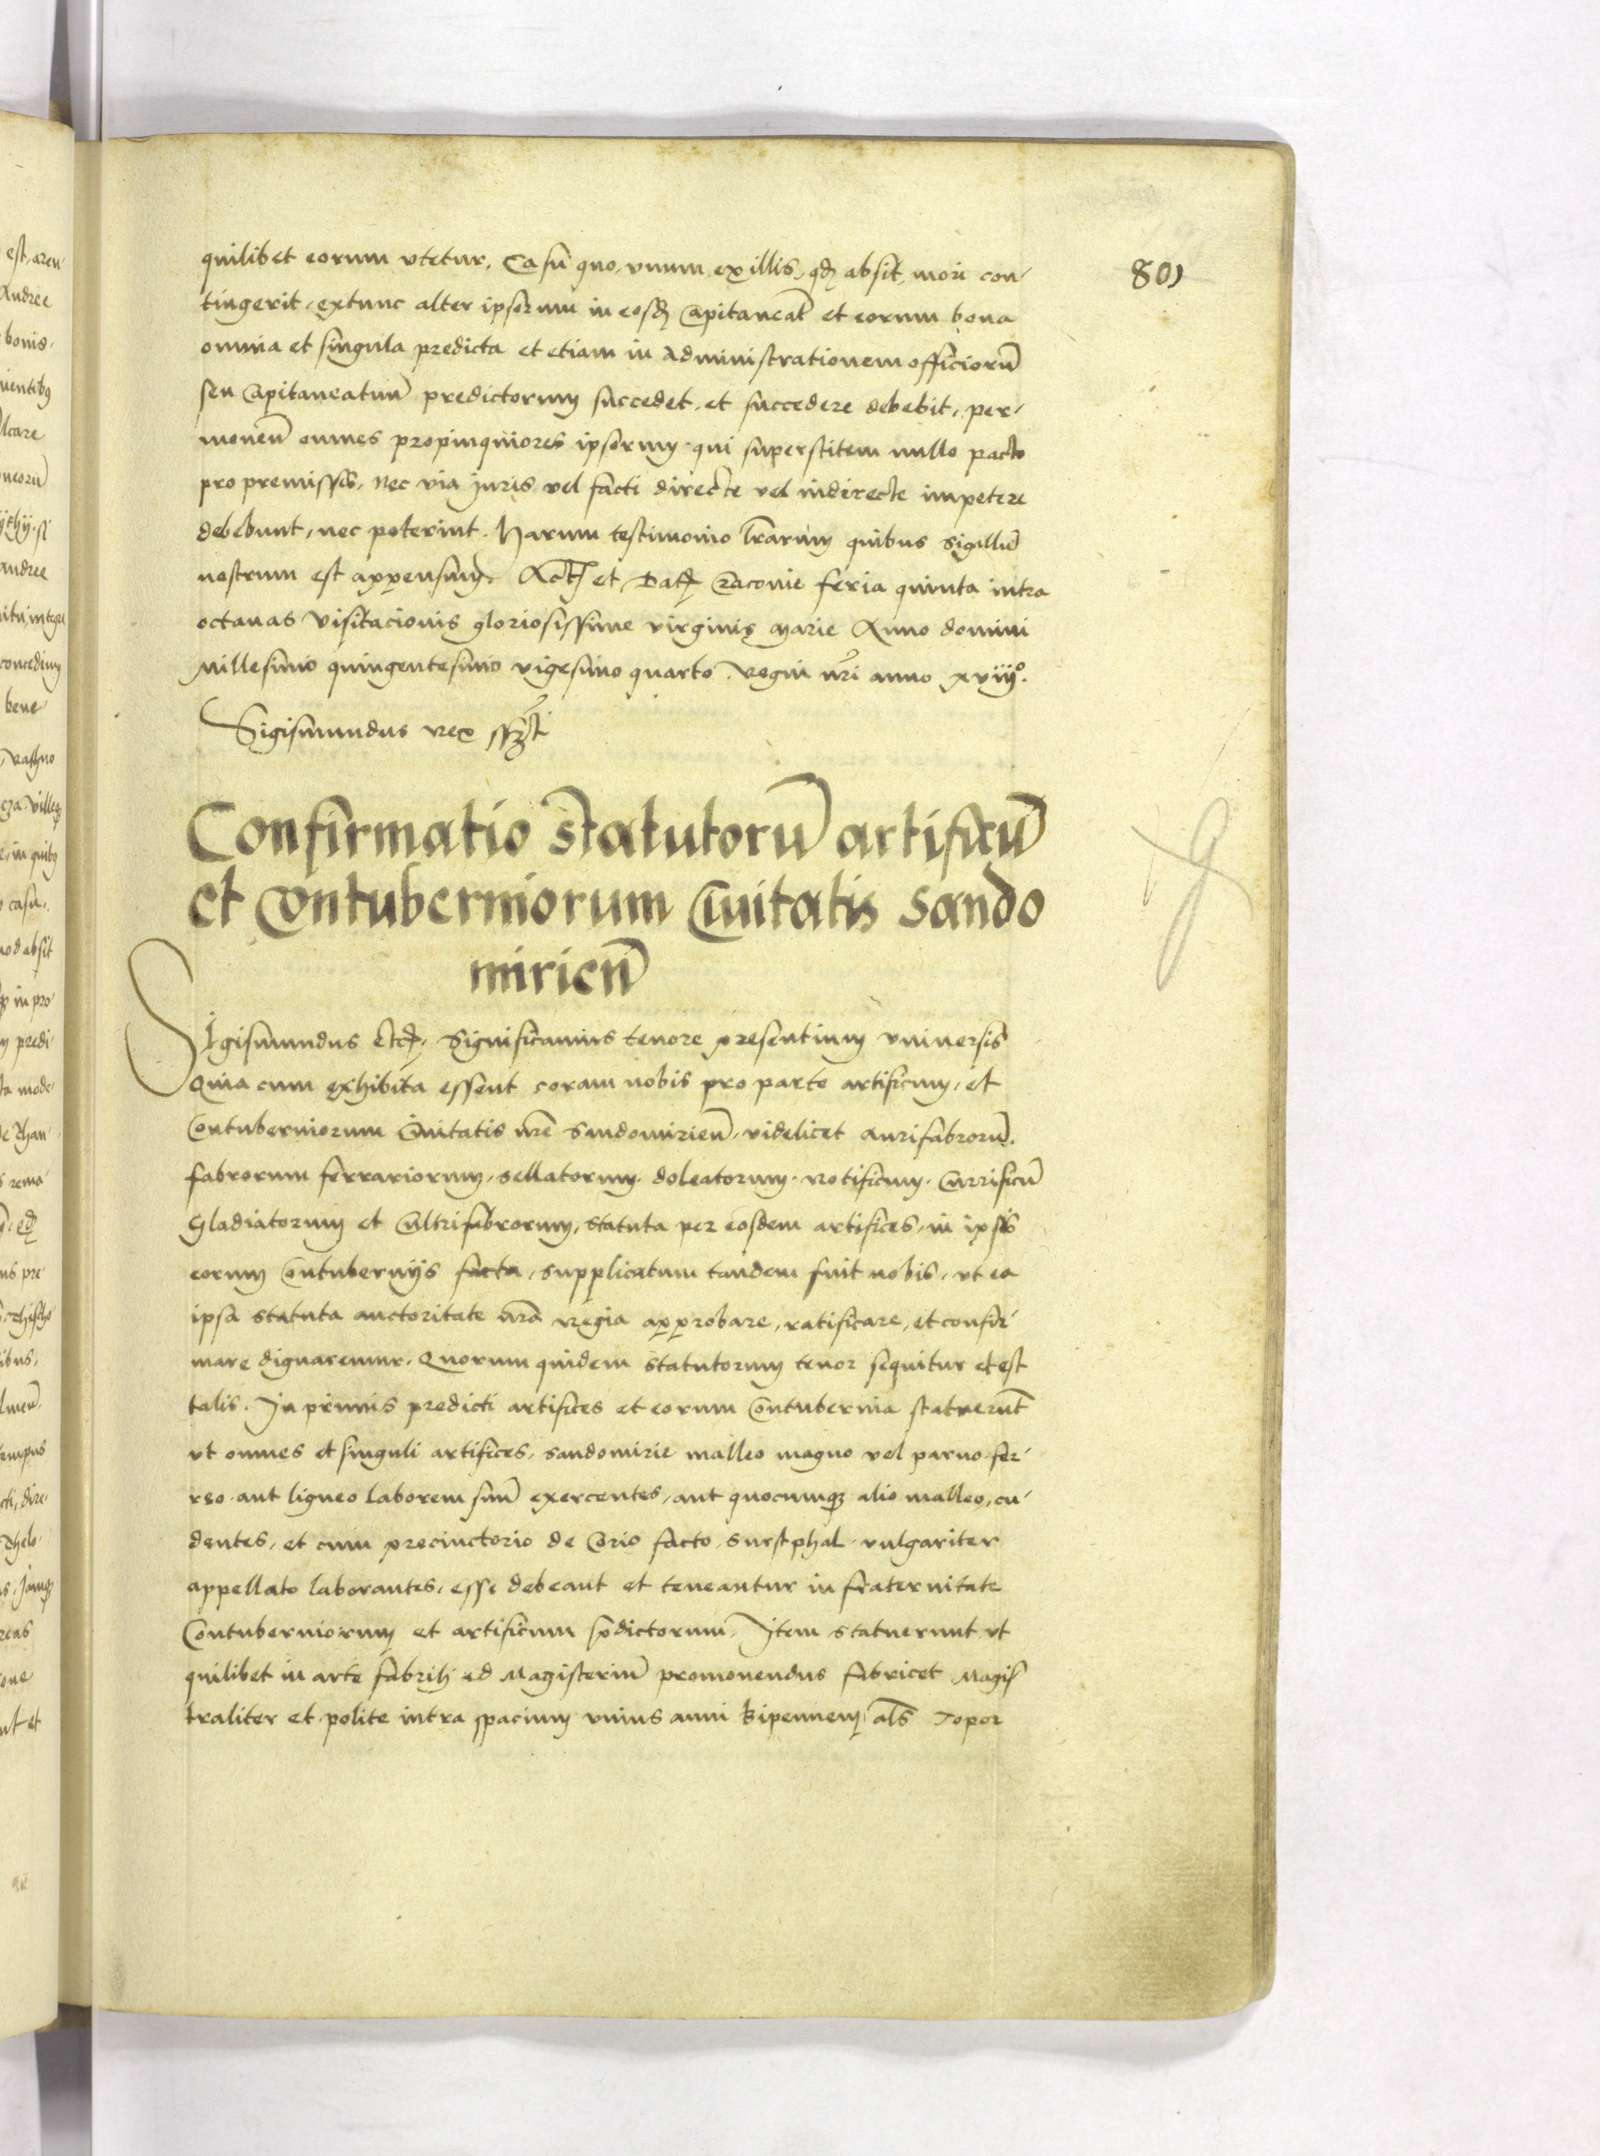 quilibet eorum vtetur, Casu quo, vnum ex illis, qđ absit, mori con-
tingerit, extunc alter ipsorum in eosđ Capitaneat̄ et eorum bona
omnia et singula predicta et etiam in Administrationem officiorū
seu Capitaneatuū predictorum succedet, et succedere debebit, per-
monen̄ omnes propinquiores ipsorum, qui superstitem nullo pacto
pro premissis, nec via Juris vel facti directe vel indirecte impetere
debebunt, nec poterint. Harum testimonio lr̄arum quibus sigillū
nostrum est appensum. Act̄ et Dat̄ Cracouie feria quinta intra
octauas Visitacionis gloriosissime virginis Marie Anno domini
Millesimo quingentesimo vigesimo quarto. Regni nr̄i anno xviijº.
Sigismundus rex sszt
801
Confirmatio statutorū artificū
et Contuberniorum Ciuitatis Sando
mirien̄
SIgismundus etc. Significamus tenore presentium vniuersis
Quia cum exhibita essent coram nobis pro parte artificum, et
Contuberniorum Ciuitatis nr̄e Sandomirien̄, videlicet Aurifabrorū,
fabrorum ferrariorum, Sellatorum, doleatorum, Rotificum, Currificū
Gladiatorum et Cultrifabrorum, statuta per eosdem artifices, in ipsis
eorum Contubernijs facta, supplicatum tandem fuit nobis, vt ea
ipsa statuta auctoritate nr̄a Regia approbare, ratificare, et confir-
mare dignaremur. Quorum quidem statutorum tenor sequitur et est
talis. In primis predicti artifices et eorum Contubernia statuerunt
vt omnes et singuli artifices, Sandomirie malleo magno vel paruo fer-
reo aut ligneo laborem suū exercentes, aut quocumqz alio malleo, cu-
dentes, et cum precinctorio de Corio facto, surstphal vulgariter
appellato laborantes, esse debeant et teneantur in fraternitate
Contuberniorum et artificum p̄dictorum. Item statuerunt vt
quilibet in arte fabrili ad Magisteriū promouendus fabricet Magis
traliter et polite intra spacium vnius anni bipennem als̄ Topor